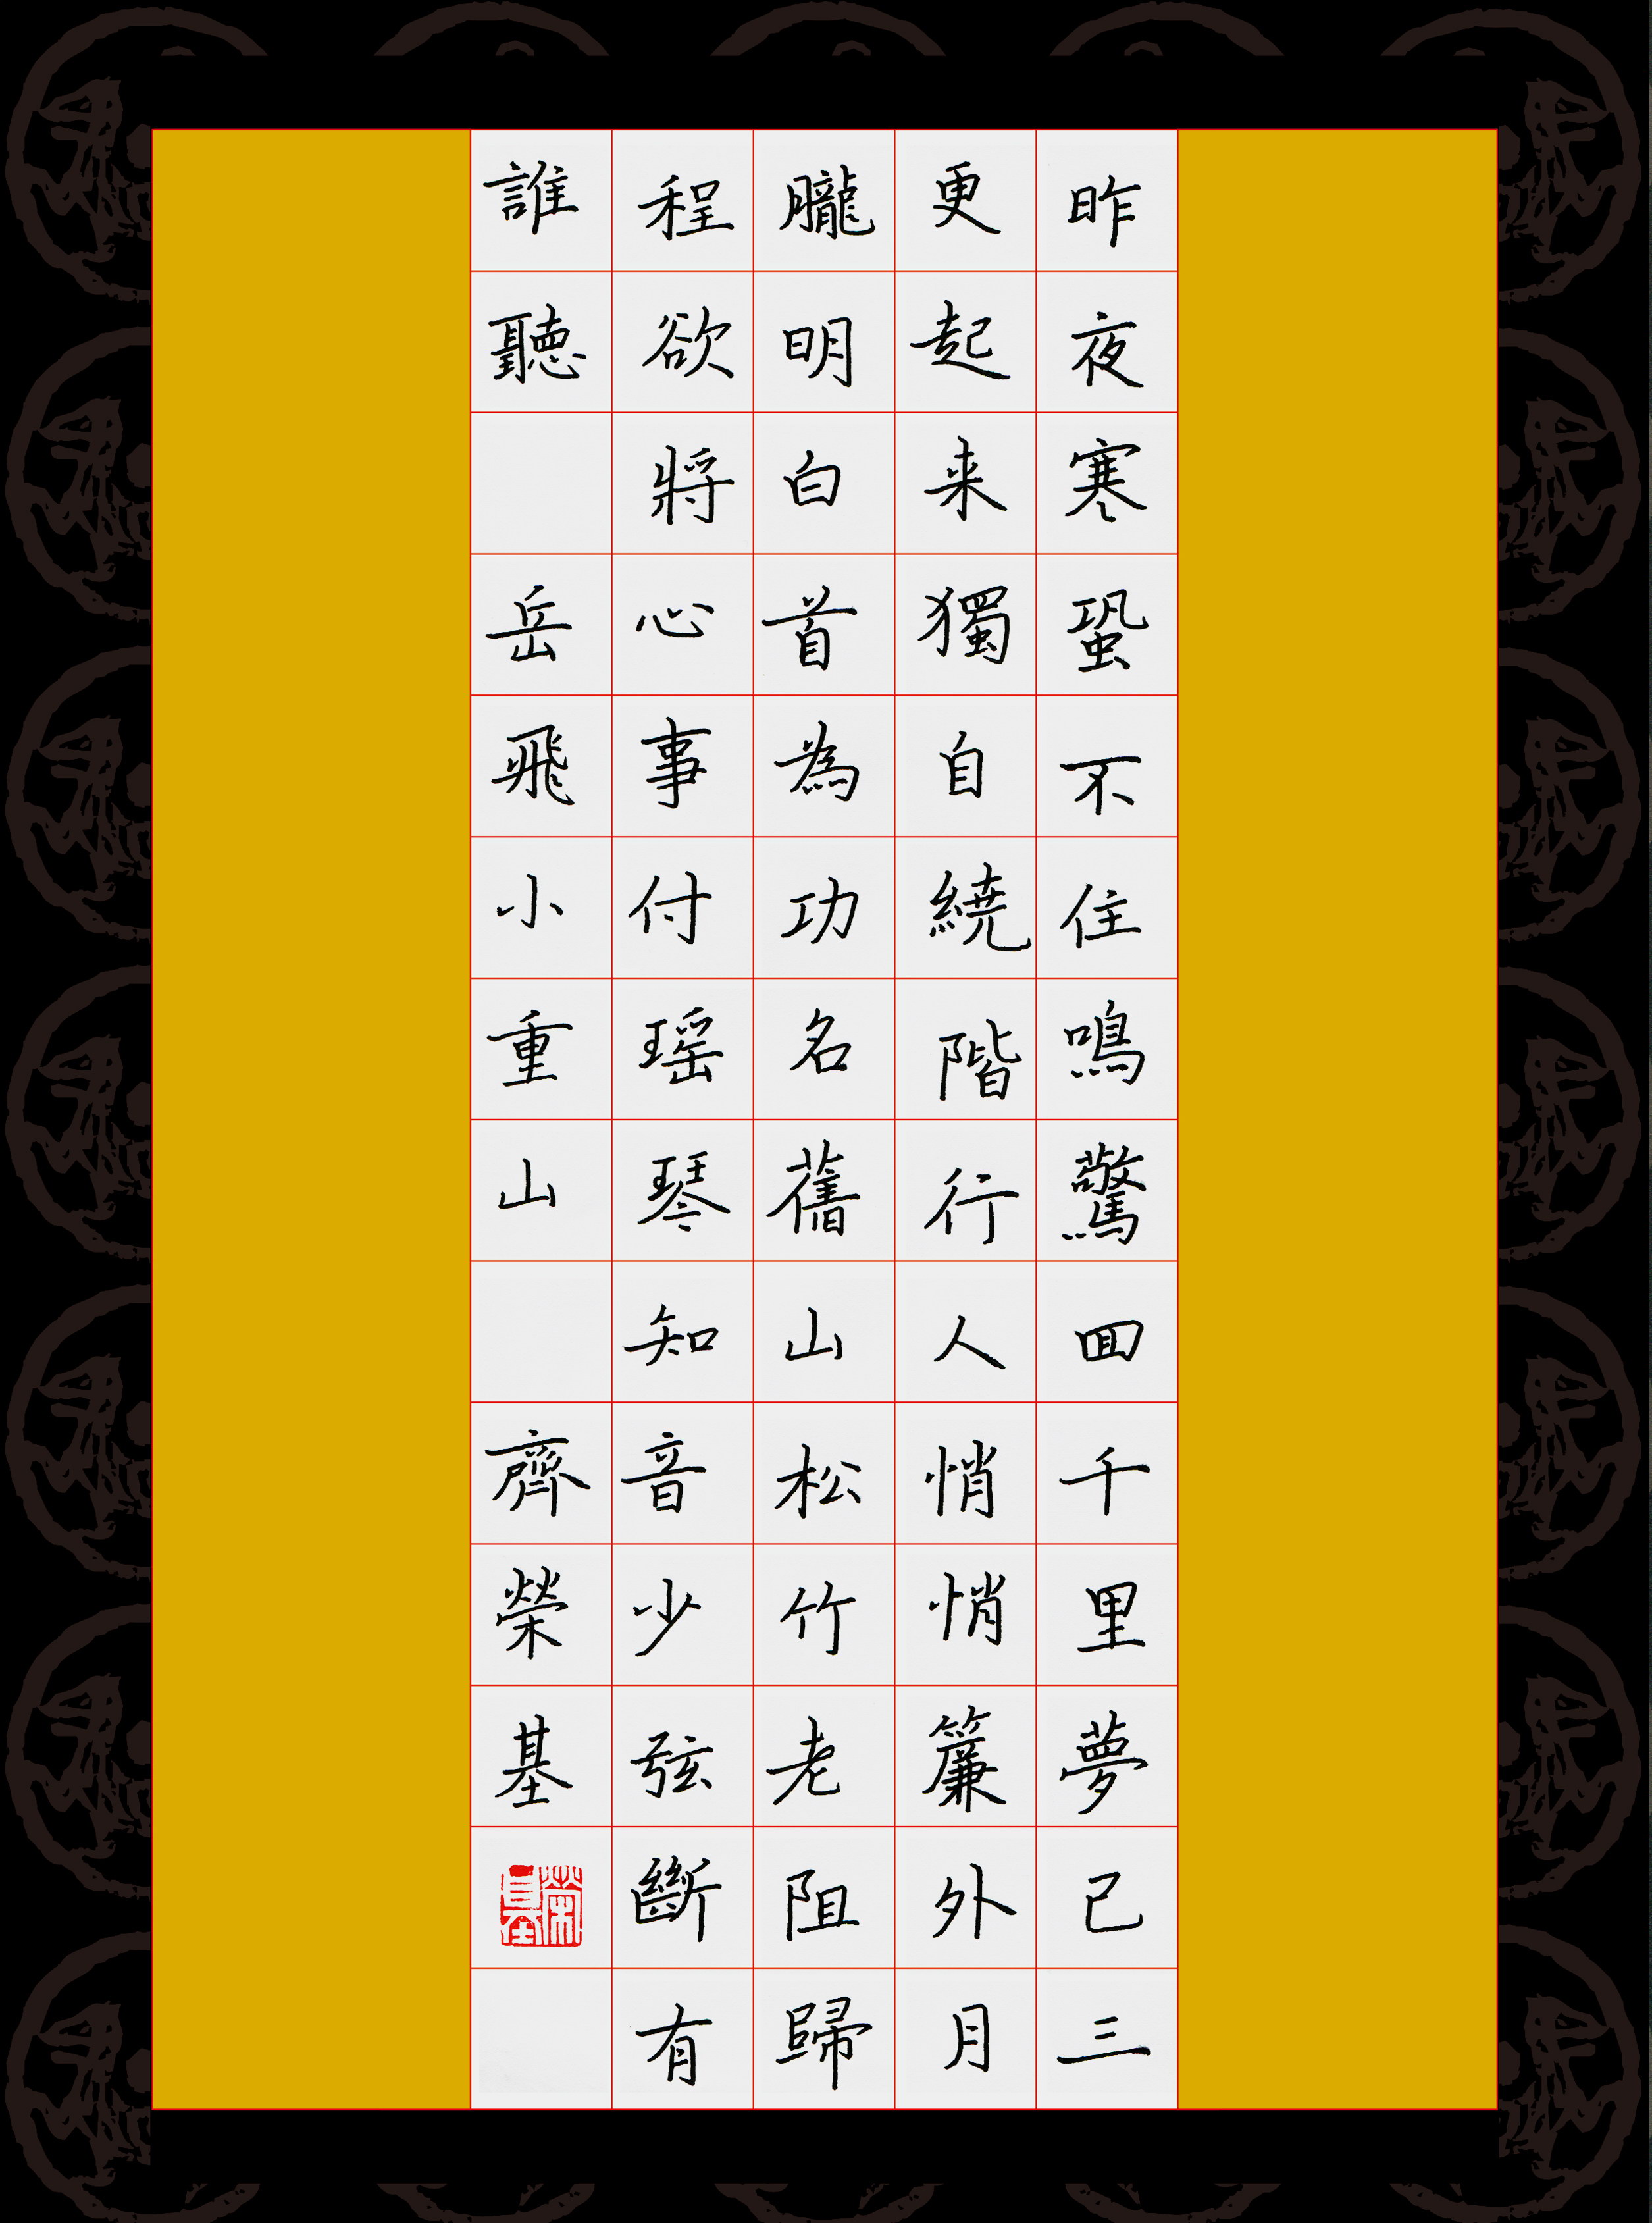 昨夜寒蛩不住鳴驚回千里夢已三
更起来獨自繞階行人悄悄簾外月
朧明白首為功名舊山松竹老阻歸
程欲將心事付瑶琴知音少弦斷有
誰聽 岳飛小重山 齊榮基
榮基